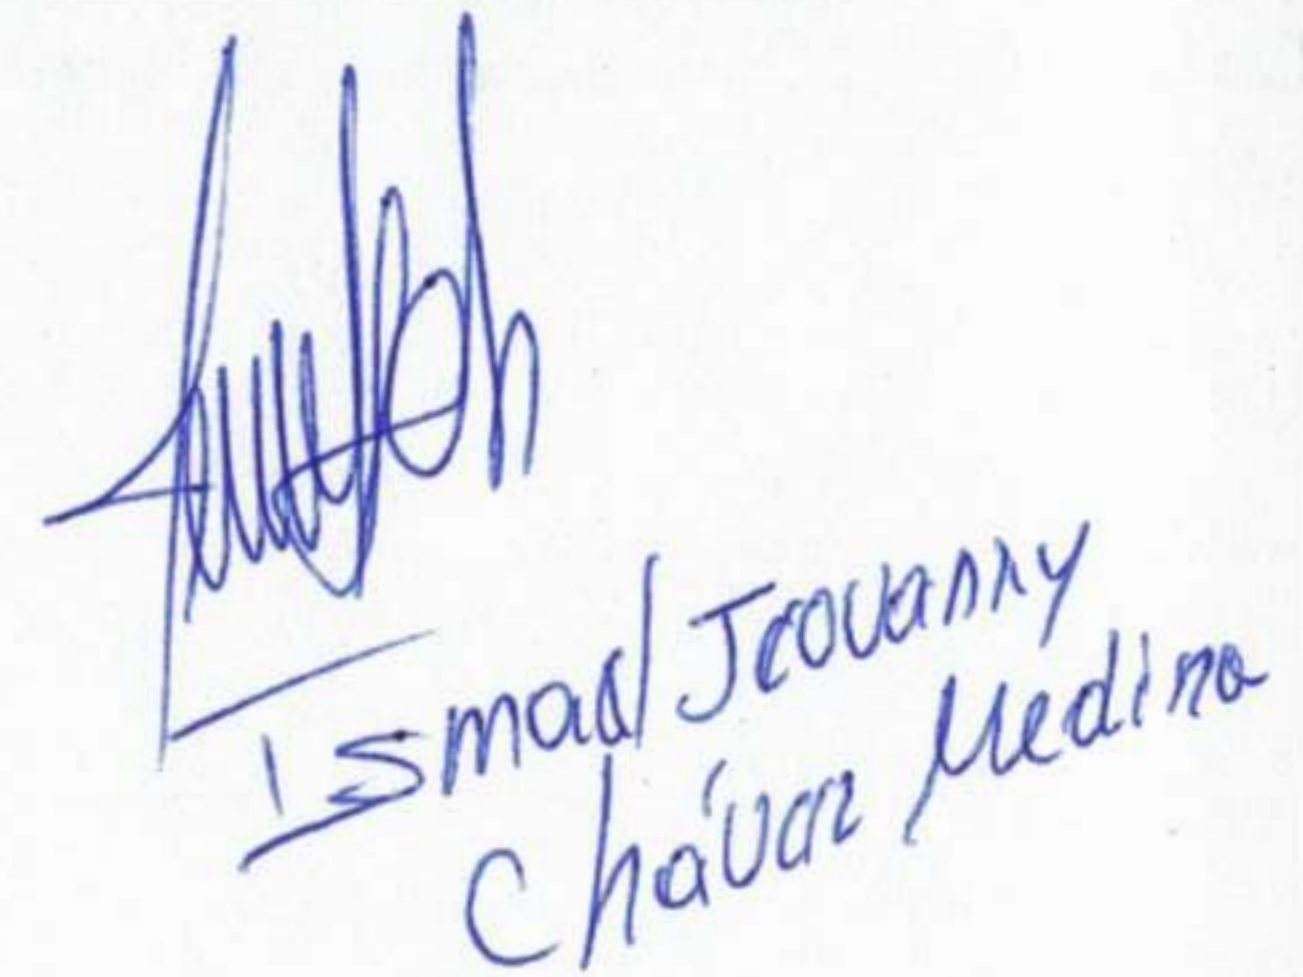 Ismael Jeovanny
Chávez Medina